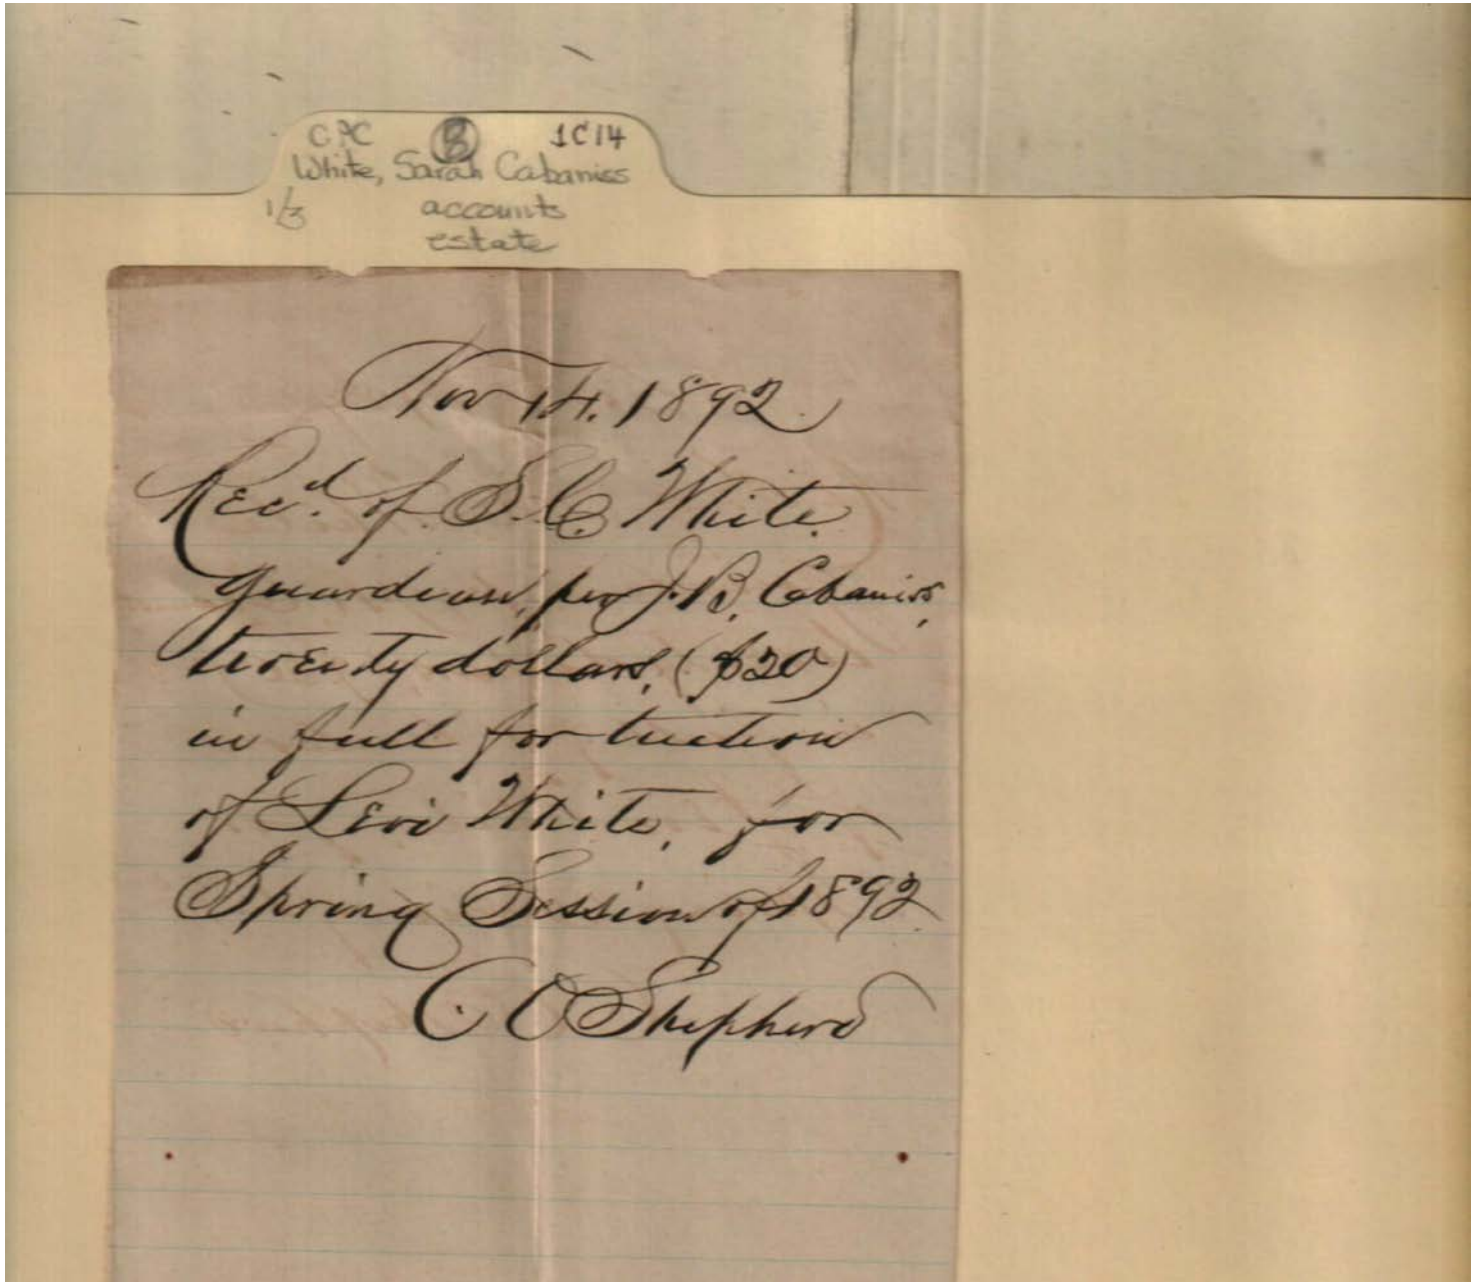 CPC B 1C14
White, Sarah Cabaniss
1/3 accounts
estate
Nov 14. 1892.
Recd. of S. C. White.
guardian, per J. B. Cabaniss,
twenty dollars, ($20)
in full for tuition
of Levi White, for
Spring Session of 1892.
C O Shepherd